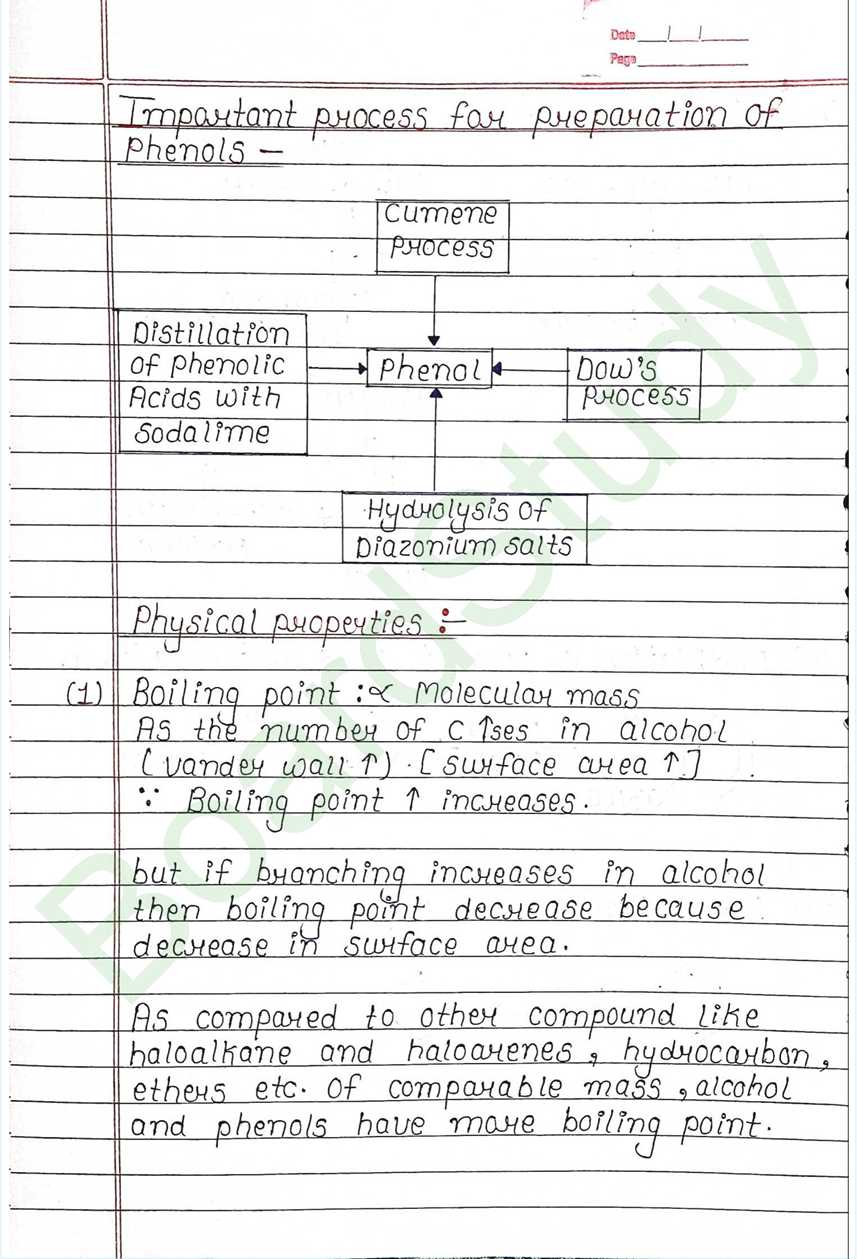 Date / /
Page
Important process for preparation of
Phenols –
Cumene
Process
Distillation
of Phenolic
Acids with
Sodalime
Phenol
Dow's
Process
Hydrolysis of
Diazonium salts
Physical properties :-
(1) Boiling point :∝ Molecular mass
As the number of C ↑ses in alcohol
(vander wall ↑) · [surface area ↑]
∵ Boiling point ↑ increases.
but if branching increases in alcohol
then boiling point decrease because
decrease in surface area.
As compared to other compound like
haloalkane and haloarenes, hydrocarbon,
ethers etc. of comparable mass, alcohol
and phenols have more boiling point.
BoardStudy